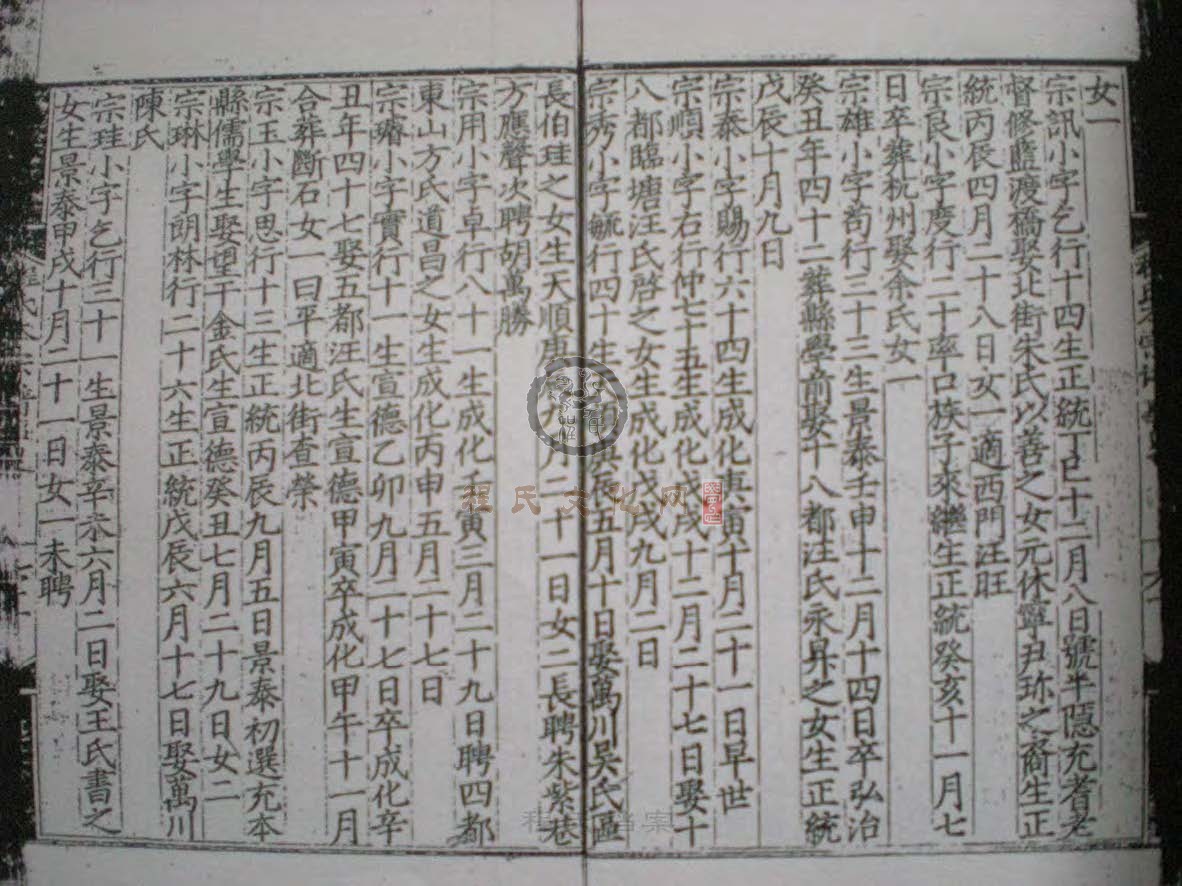 女一
宗訊小字乞行十四生正統丁巳十二月八日號半隱充耆老
督修藍渡橋娶北街朱氏以善之女元休寧尹珎之裔生正
統丙辰四月二十八日女一適西門汪旺
宗良小字慶行二十率口族子來繼生正統癸亥十一月七
日卒葬杭州娶余氏女一
宗雄小字苟行三十三生景泰壬申十二月十四日卒弘治
癸丑年四十二葬縣學前娶十八都汪氏永昇之女生正統
戊辰十月九日
宗泰小字賜行六十四生成化庚寅十月二十一日早世
宗順小字右行仲七十五生成化戊戌十二月二十七日娶十
八都臨塘汪氏啓之女生成化戊戌九月二日
宗秀小字毓行四十生天順庚辰五月十日娶萬川吳氏區
長伯珪之女生天順庚九月二十一日女二長聘朱紫巷
方應聲次聘胡萬勝
宗用小字卓行八十一生成化壬寅三月二十九日聘四都
東山方氏道昌之女生成化丙申五月二十七日
宗璿小字實行十一生宣德乙卯九月二十七日卒成化辛
丑年四十七娶五都汪氏生宣德甲寅卒成化甲午十一月
合葬斷石女一曰平適北街查榮
宗玉小字思行十三生正統丙辰九月五日景泰初選充本
縣儒學生娶望干金氏生宣德癸丑七月二十九日女二
宗琳小字朗林行二十六生正統戊辰六月十七日娶萬川
陳氏
宗珪小字乞行三十一生景泰辛未六月二日娶王氏書之
女生景泰甲戌十月二十一日女一未聘
程氏文化网